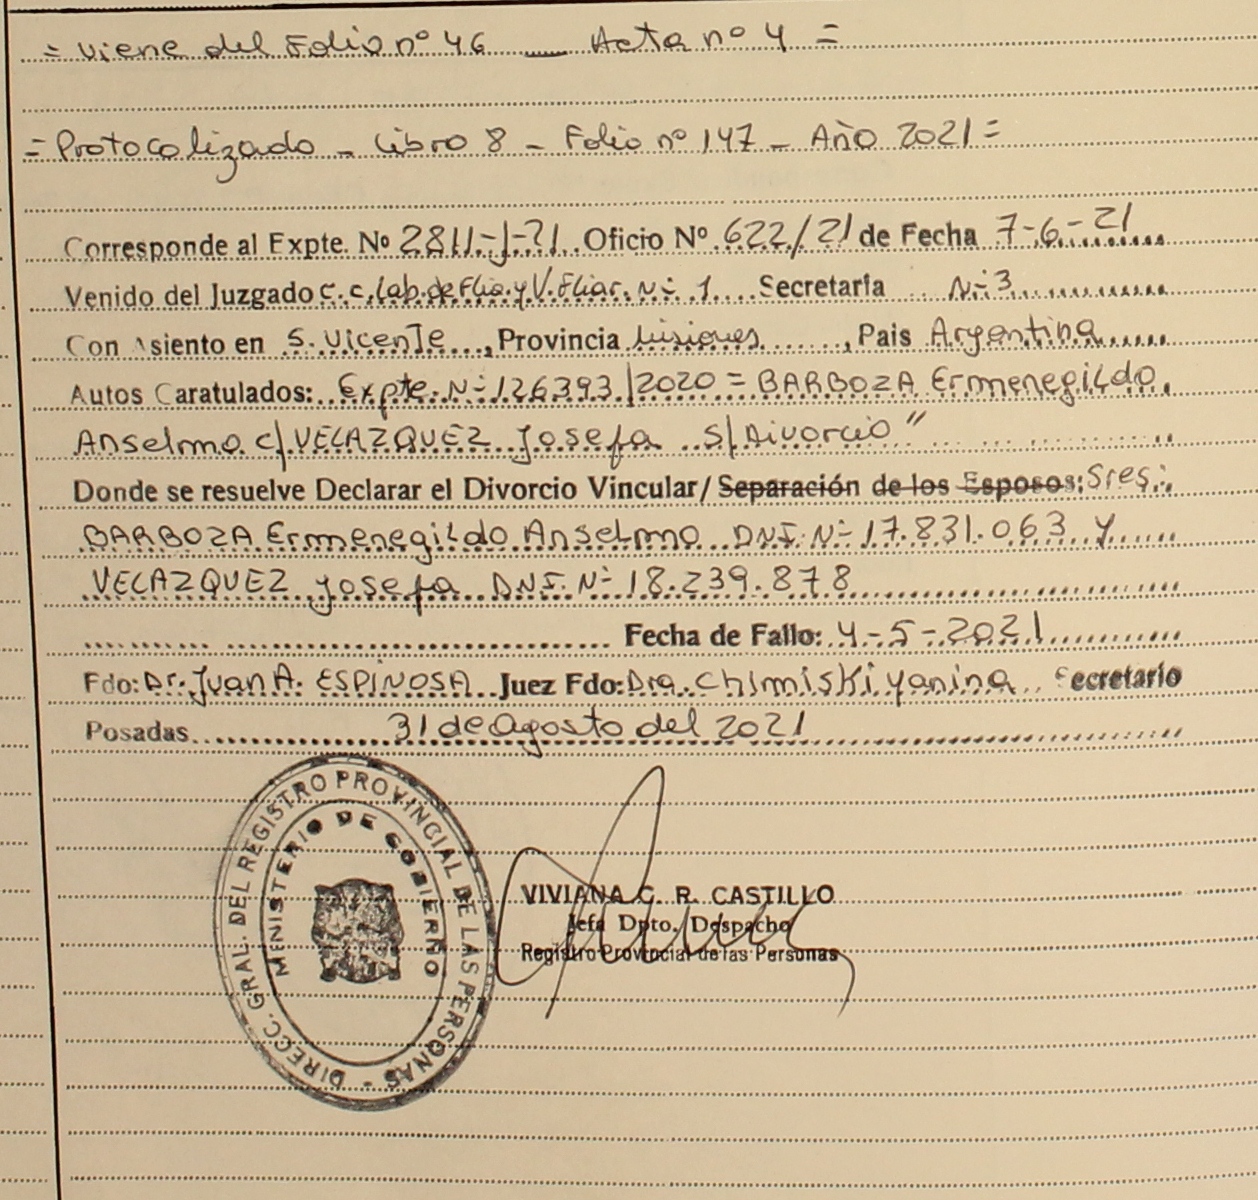 = Viene del Folio nº 46 __ Acta nº 4 =
= Protocolizado - Libro 8 - Folio nº 147 - Año 2021 =
Corresponde al Expte. Nº 2811-J-21 Oficio Nº 622/21 de Fecha 7-6-21
Venido del Juzgado C.C. Lab. de Flia. y V. Fliar. Nº 1 Secretaría Nº 3
Con Asiento en S. Vicente, Provincia Misiones, Pais Argentina
Autos Caratulados: Expte. Nº 126393/2020 = BARBOZA Ermenegildo
Anselmo c/ VELAZQUEZ Josefa s/ Divorcio"
Donde se resuelve Declarar el Divorcio Vincular/ Separación de los Esposos: Sres:
BARBOZA Ermenegildo Anselmo DNI. Nº 17.831.063 y
VELAZQUEZ Josefa DNI. Nº 18.239.878
Fecha de Fallo: 4-5-2021
Fdo: Dr. Juan A. ESPINOSA Juez Fdo: Dra. Chimiski Yanina Secretario
Posadas 31 de Agosto del 2021
DIRECC. GRAL. DEL REGISTRO PROVINCIAL DE LAS PERSONAS -
MENISTERIO DE GOBIERNO
VIVIANA C. R. CASTILLO
Jefa Dpto. Despacho
Registro Provincial de las Personas